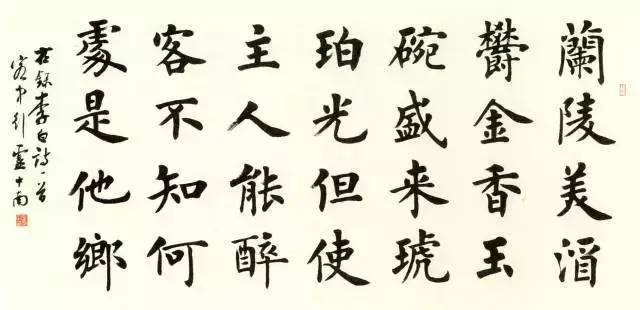 蘭陵美酒
欝金香玉
碗盛来琥
珀光但使
主人能醉
客不知何
處是他鄉
右録李白詩一首
客中行盧中南